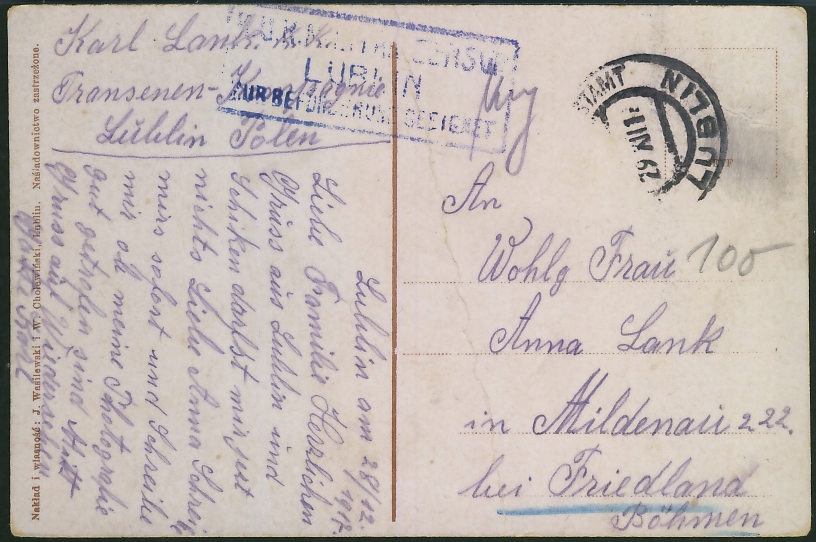 Karl Lank. k. k.
Transenen-Kompagnie
Lublin Polen
K.U.K. MILITÄRZENSUR
LUBLIN
ZUR BEFÖRDERUNG GEEIGNET
Lublin am 28/12.
1917.
Liebe Familie Herzlichen
Gruss aus Lublin und
Schiken darfst mir jezt
nichts Liebe Anna Schreib
mirs sofort und Schreibe
mir ob meine Photografie
gut getrofen sind Mitt
Gruss auf Wiedersehen
Karl
Nakład i własność: J. Wasilewski i W. Cholewiński, Lublin. Naśladownictwo zastrzeżone.
LUBLIN
29 XII 17
An
Wohlg Frau
100
Anna Lank
in Mildenau 222.
bei Friedland
Böhmen